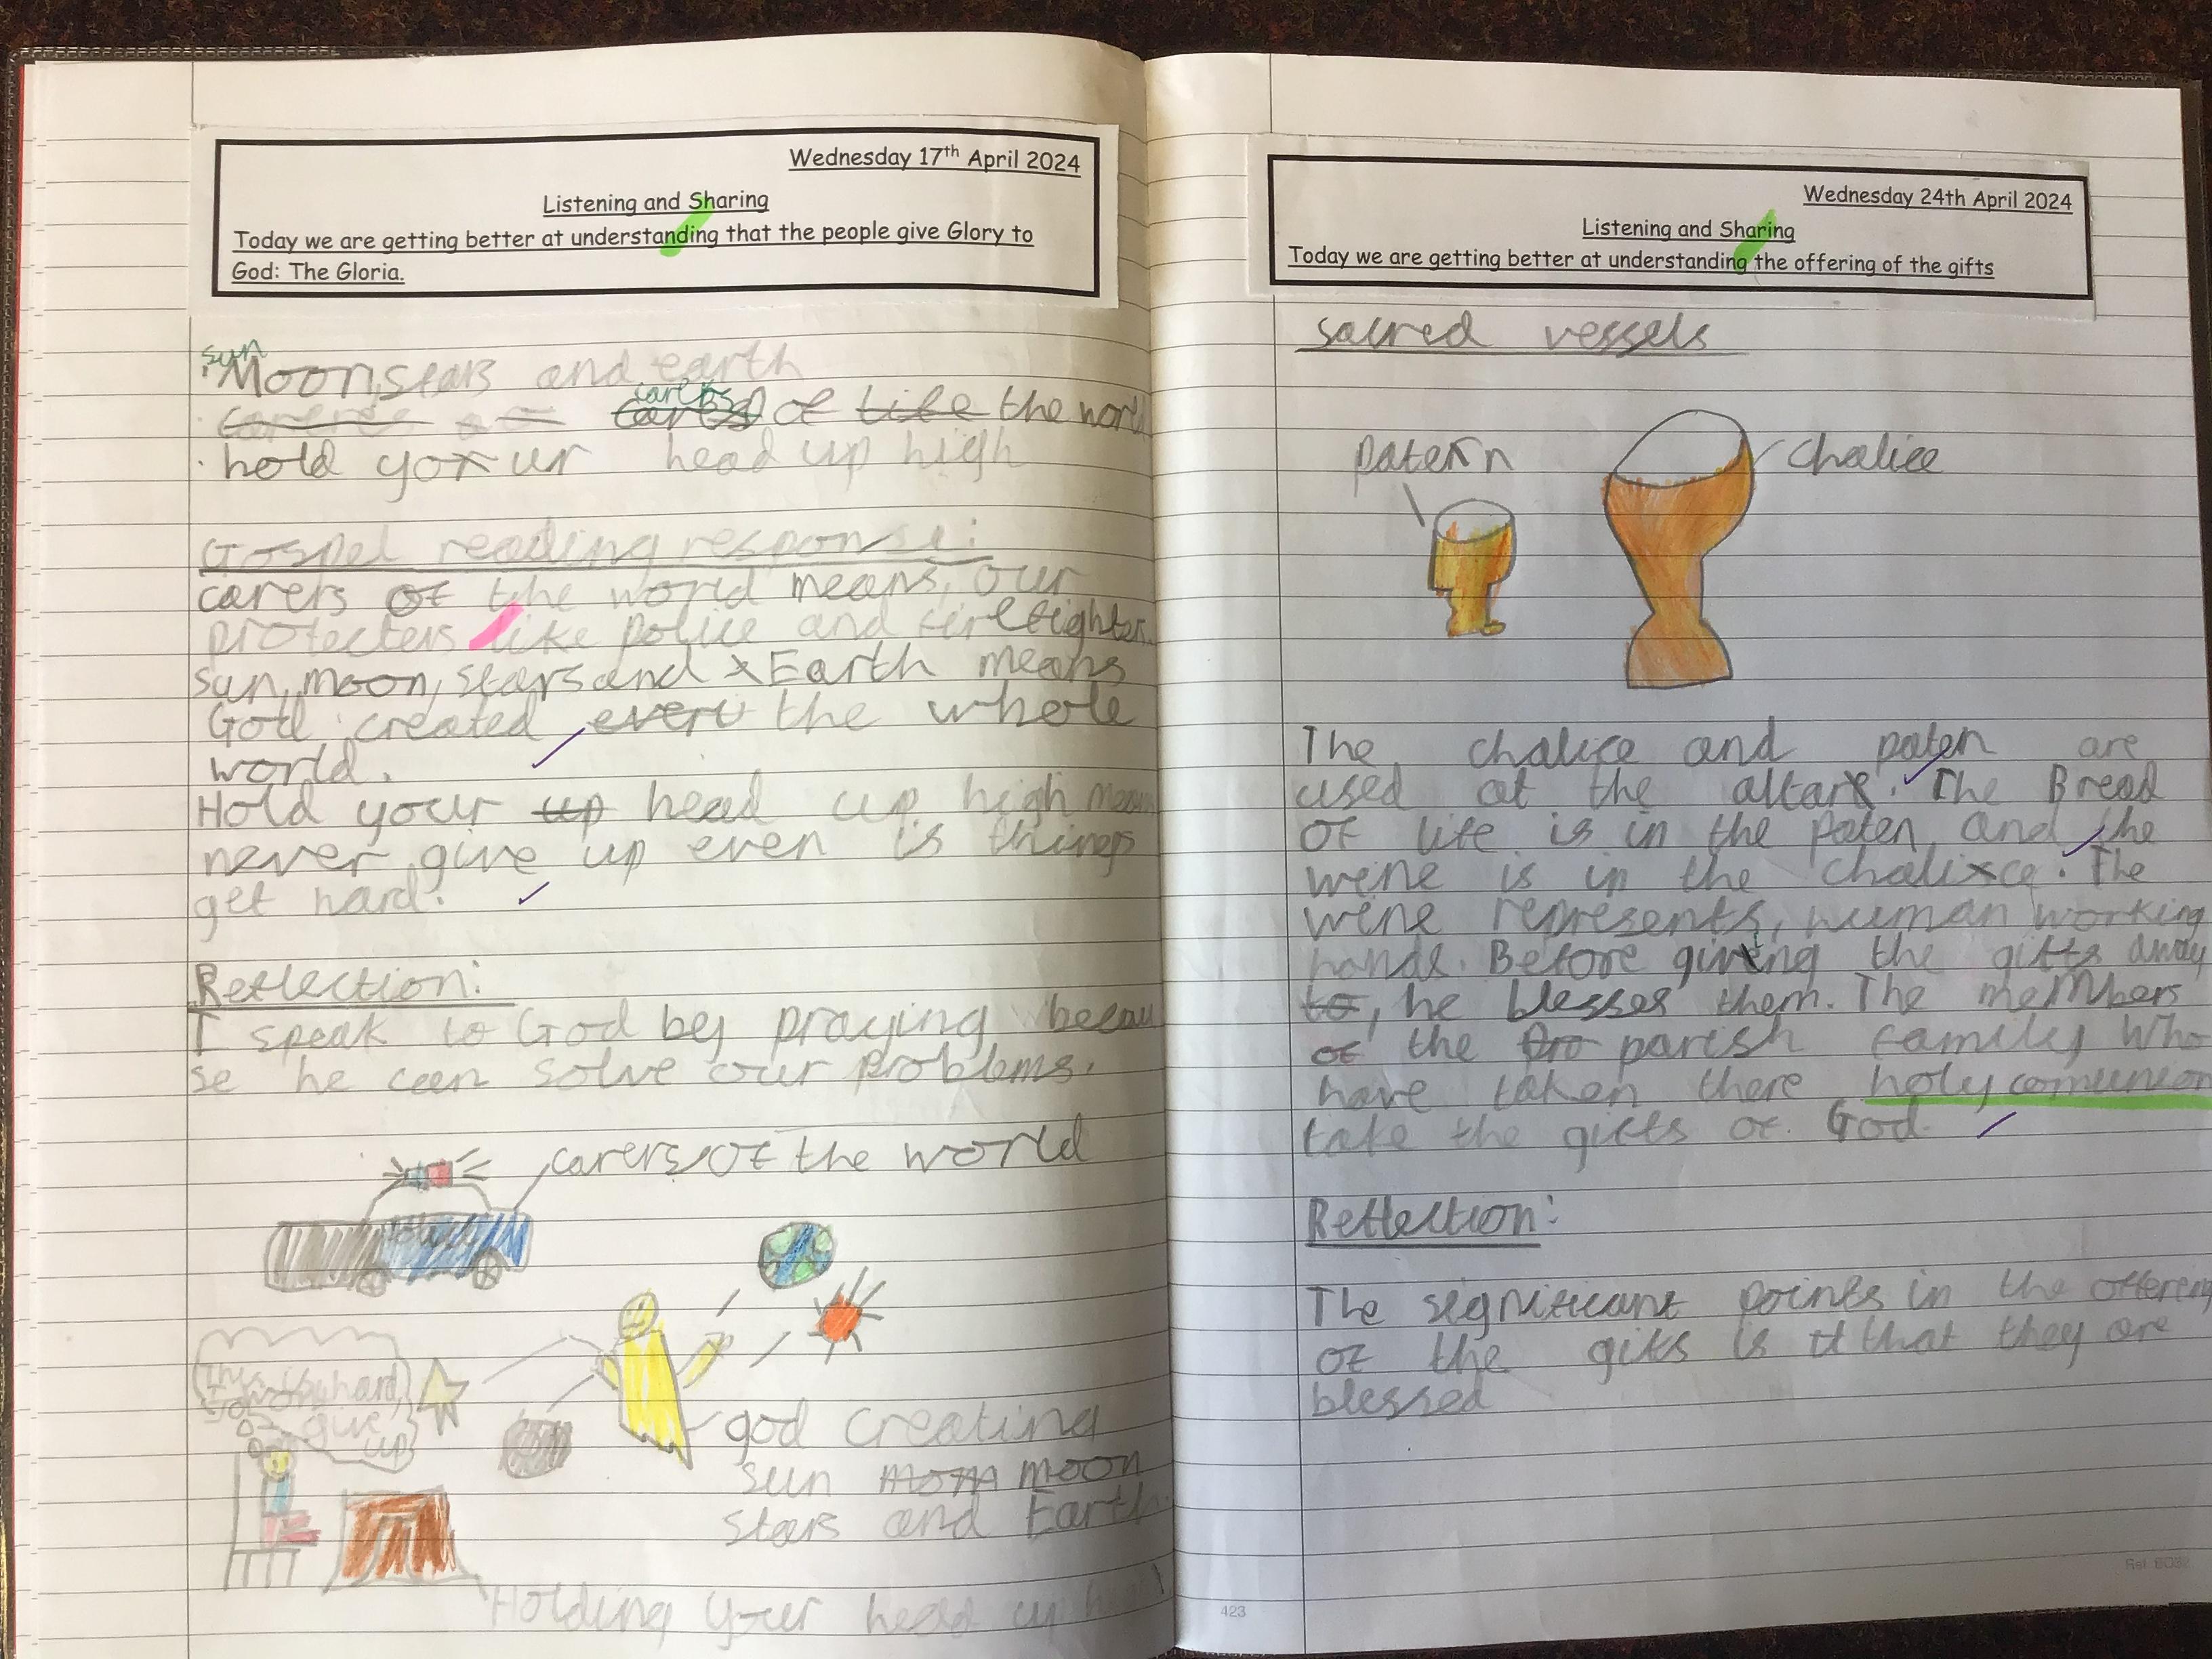 Wednesday 17th April 2024
Listening and Sharing
Today we are getting better at understanding that the people give Glory to
God: The Gloria.
sun
Moon, stars and earth
carers
of the world
hold your head up high
Gospel reading response:
carers of the world means, our
protecters like police and firefighters
sun, moon, stars and Earth means
God created the whole
world.
Hold your up head up high means
never give up even is things
get hard.
Reflection:
I speak to God by praying becau
se he can solve our problems.
carers of the world
god creating
sun mom moon
stars and Earth
This is hard,
give
up
Holding your head up
Wednesday 24th April 2024
Listening and Sharing
Today we are getting better at understanding the offering of the gifts
sacred vessels
patern
chalice
The chalice and paten are
used at the altar. The Bread
of life is in the paten and the
wine is in the chalice. The
wine represents, human working
hands. Before giving the gifts away
to, he blesses them. The members
of the pro parish family who
have taken there holy comunion
take the gifts of God.
Reflection:
The significant points in the offering
of the gifts is that they are
blessed
423